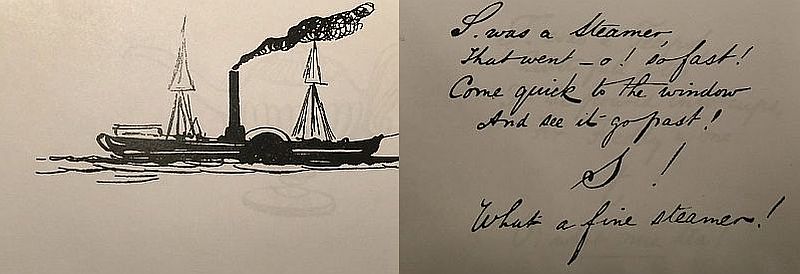 S. was a steamer
That went – o! so fast!
Come quick to the window
And see it go past!
S!
What a fine steamer!